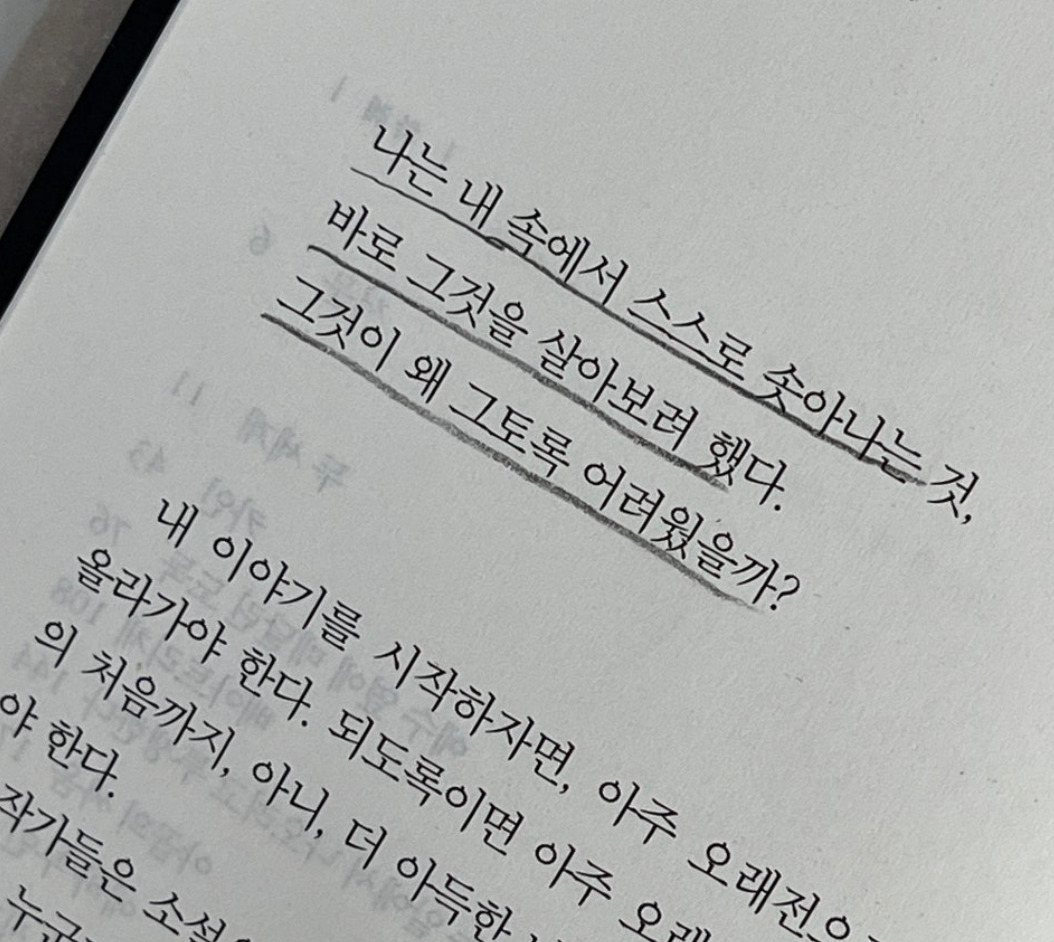 나는 내 속에서 스스로 솟아나는 것,
바로 그것을 살아보려 했다.
그것이 왜 그토록 어려웠을까?
내 이야기를 시작하자면, 아주 오래전으
올라가야 한다. 되도록이면 아주 오래
의 처음까지, 아니, 더 아득한
야 한다.
작가들은 소설